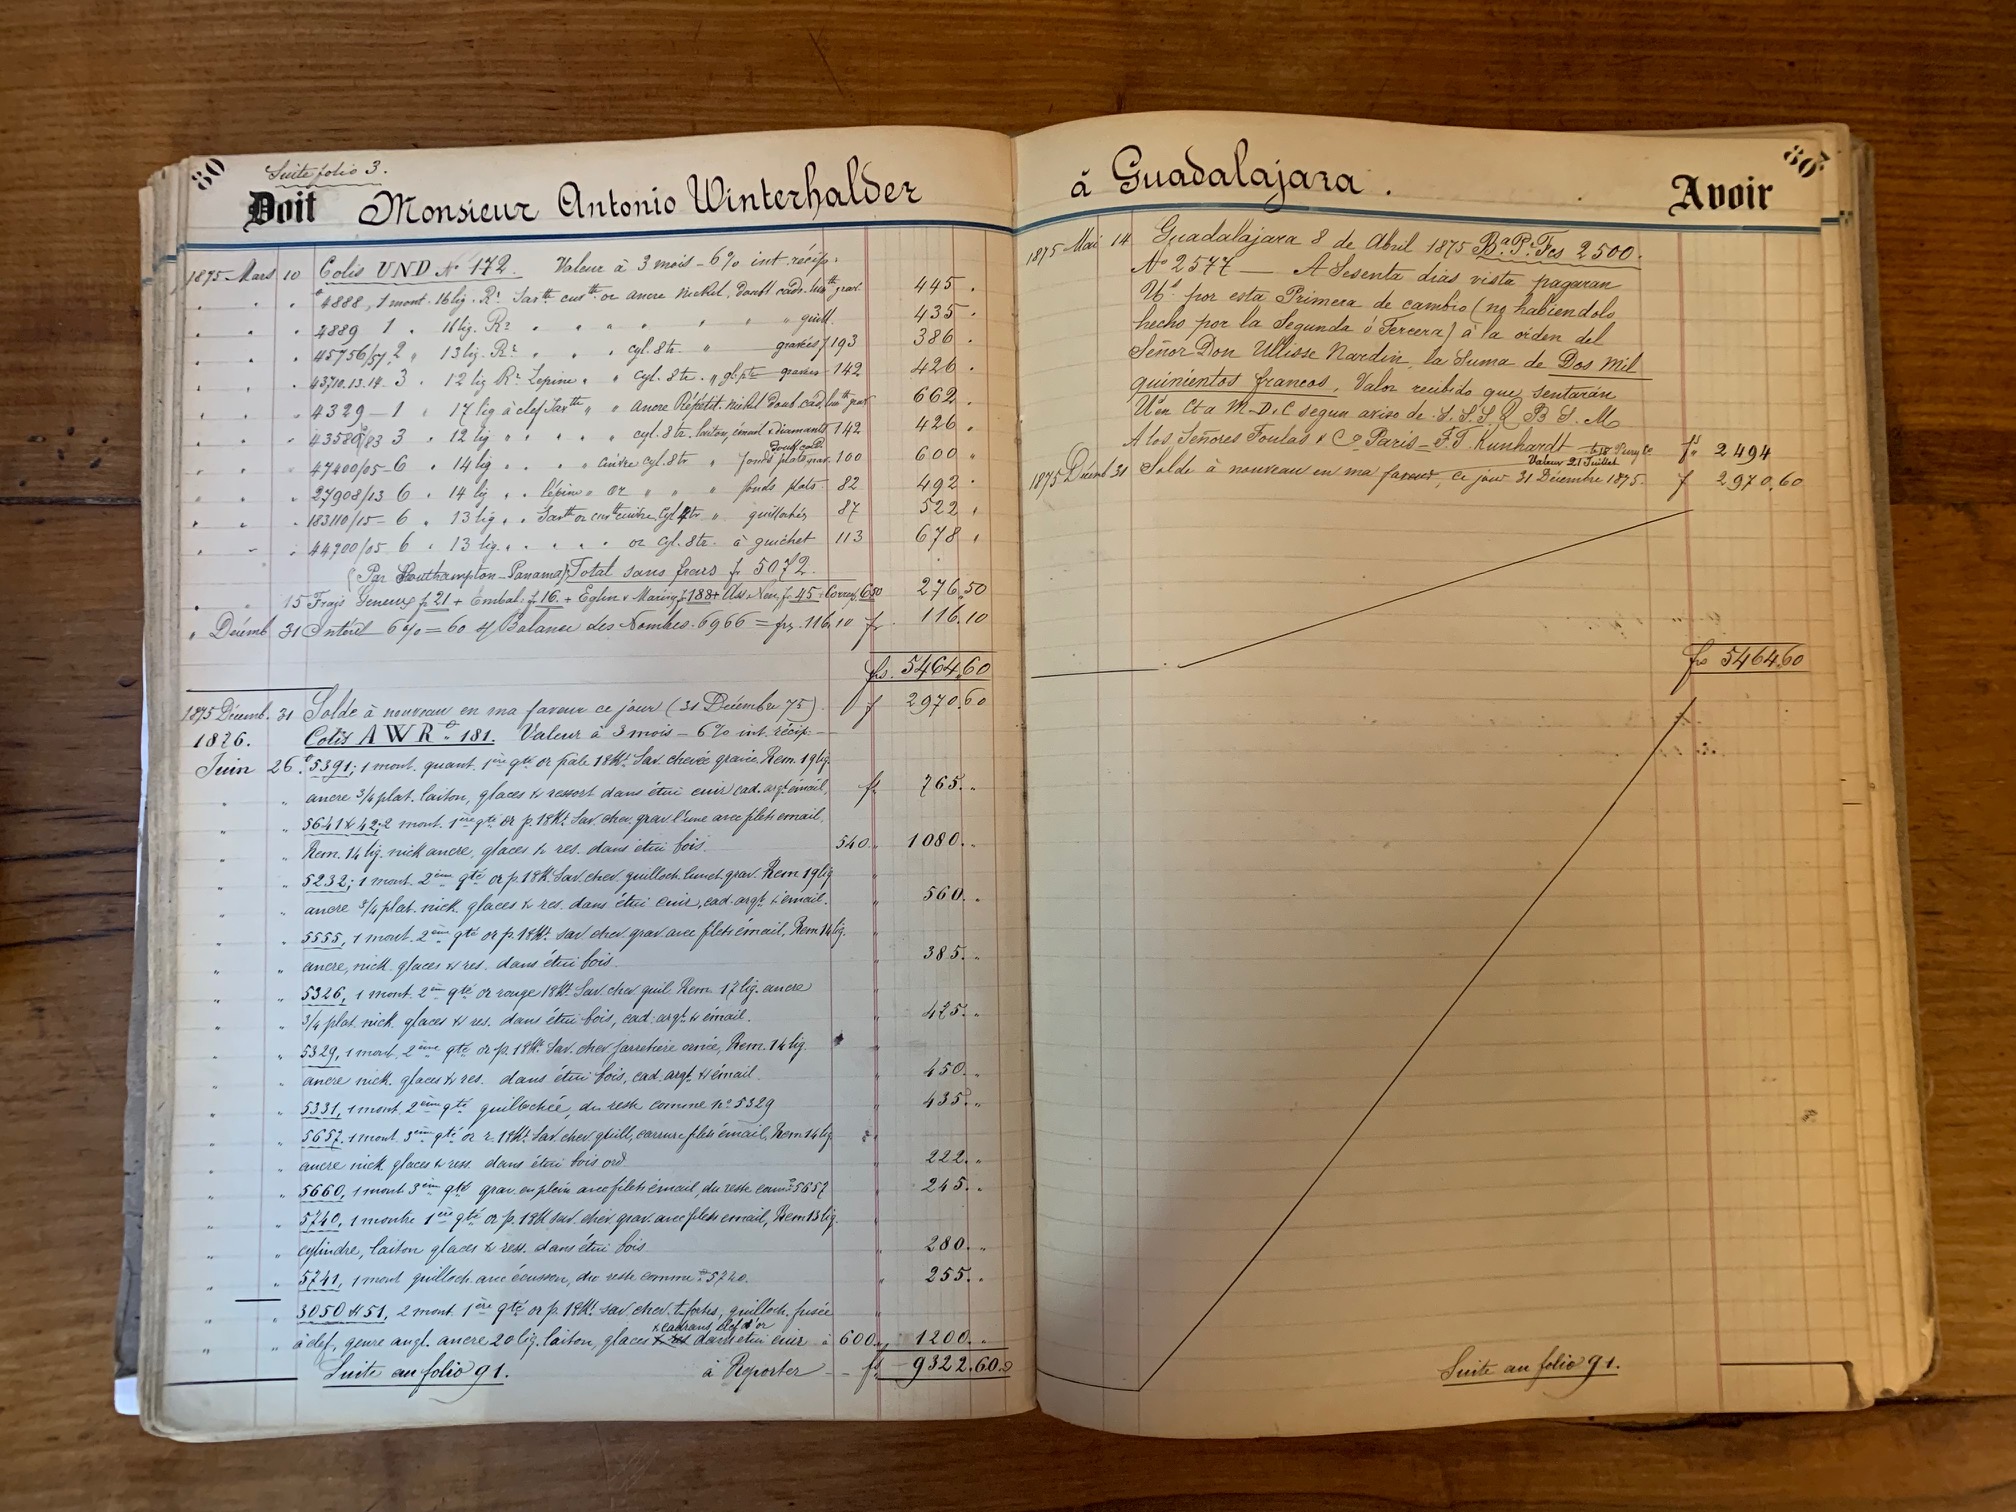 80
Suite folio 3.
Doit Monsieur Antonio Winterhalder
1875 Mars 10 Colis UND No 172. Valeur à 3 mois - 6% int. récip.
4888, 1 mont. 16 lig. Rr Savtte cuvtte or ancre nickel, doubl cadr. grav. 445
4889 1 " 16 lig. Rr " " " " " " guill. 435
45756/57, 2 " 13 lig. Rr " " " cyl. 8tr. " gravés f 193 386
43710.13.14 3 " 12 lig Rr Lepine " " cyl. 8tr. " gl. pte gravées 142 426
4329 - 1 " 17 lig à clef Savtte " " ancre Répétit. nickel doub. cad. grav 662
3 " 12 lig " " " " cyl. 8tr. laiton, émail & diamants 142 426
47400/05 - 6 " 14 lig " " " cuivre cyl. 8tr " fonds plats grav. 100 600
27908/13 6 " 14 lig " " lépine " or " " " fonds plats 82 492
183110/15 - 6 " 13 lig " " Savtte or cuvtte cuivre, cyl 4tr " guillochés 87 522
44900/05 6 " 13 lig. " " " " or cyl. 8tr. à guichet 113 678
(Par Southampton - Panama) Total sans frais fr 5072.
15 Frais Geneux fr 21 + Embal. fr 16. + Eglin & Maring fr 188 + Ass. Neu. fr 45 = Corresp. 6.50 276.50
" Décemb 31 Intérêt 6% = 60 s/ Balance des Nombres. 6966 = frs. 116.10 fr. 116.10
frs. 5464.60
1875 Décemb. 31 Solde à nouveau en ma faveur ce jour (31 Décembre 75) f 2970.60
1876. Colis A W R No 181. Valeur à 3 mois - 6% int. récip. -
Juin 26. 5391; 1 mont. quant. 1ère qté or pale 18Kt. Sav. chevée gravée Rem. 19 lig
ancre 3/4 plat. laiton, glaces & ressort dans étui cuir cad. argt émail, fr 765. "
5641 & 42; 2 mont. 1ère qté or p. 18Kt. Sav. chev. grav. l'une avec filets émail,
Rem. 14 lig. nick ancre, glaces & res. dans étui bois. 540. 1080. "
5232; 1 mont. 2ème qté or p. 18K. Sav. chev. guilloch. lunet. grav. Rem 19 lig
ancre 3/4 plat. nick. glaces & res. dans étui cuir, cad. argt. & émail. 560. "
5555, 1 mont. 2ème qté or p. 18Kt. sav. chev. grav. avec filets émail, Rem 14 lig.
ancre, nick. glaces & res. dans étui bois. 385. "
5326, 1 mont. 2ème qté or rouge 18Kt. Sav. chev. guil. Rem. 17 lig. ancre
3/4 plat. nick. glaces & res. dans étui bois, cad. argt. & émail. 425. "
5329, 1 mont, 2ème qté or p. 18Kt. Sav. chev jarretière ornée, Rem. 14 lig.
ancre nick. glaces & res. dans étui bois, cad. argt. & émail. 450. "
5331, 1 mont. 2ème qté guillochée, du reste comme no. 5329 435. "
5657. 1 mont. 3ème qté or r. 18Kt. Sav. chev guill, carrure filets émail, Rem 14 lig
ancre nick. glaces & ress. dans étui bois ord 222. "
5660, 1 mont. 3ème qté grav. en plein avec filets émail, du reste com. 5657 245. "
5740, 1 montre 1ère qté or p. 18K sav. chev. grav. avec filets émail, Rem 13 lig.
cylindre, laiton glaces & ress. dans étui bois 280. "
5741, 1 mont guilloch. avec écusson, du reste comme no 5740. 255. "
3050 & 51, 2 mont. 1ère qté or p. 18Kt. sav. chev. t. forts, guilloch. fusée
& cadrans, clef d'or
à clef, genre angl. ancre 20 lig. laiton, glaces dans étui cuir à 600. 1200. "
Suite au folio 91. à Reporter - - fr 9322.60
80
à Guadalajara.
Avoir
1875 Mai 14 Guadalajara 8 de Abril 1875 Ba. Pr. Fcs 2500.
No 2577 — A Sesenta dias vista pagaran
Us. por esta Primera de cambio (no habiendolo
hecho por la Segunda ó Tercera) à la orden del
Señor Don Ullisse Nardin, la Suma de Dos mil
quinientos francos, Valor recibido que sentarán
Uen Cta M-D.C segun aviso de S.S.S.Q B S.M
A los Señores Foulas & Co Paris - F.T. Kunhardt fr. 2494
Valeur 21 Juillet
1875 Décemb 31 Solde à nouveau en ma faveur, ce jour 31 Décembre 1875. f 2970.60
frs 5464.60
Suite au folio 91.